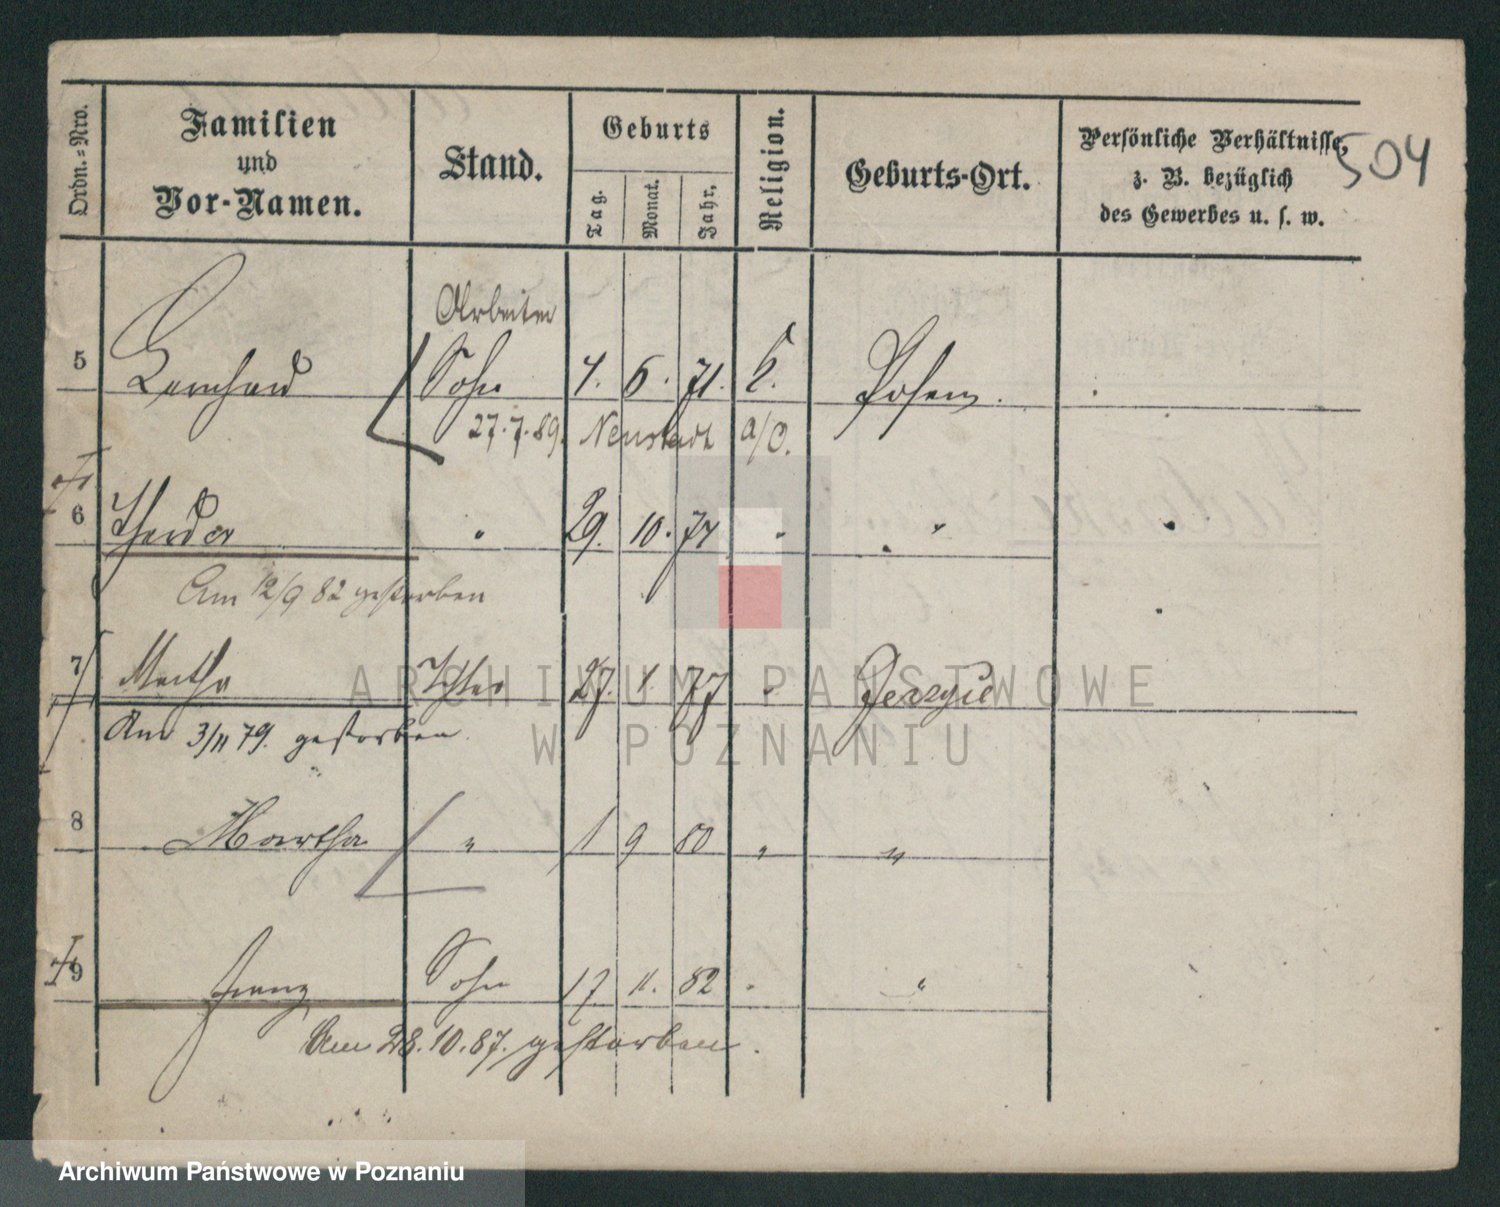 504
Ordn.=Nro. Familien und Vor-Namen. Stand. Geburts Tag. Monat. Jahr. Religion. Geburts-Ort. Persönliche Verhältnisse, z. B. bezüglich des Gewerbes u. s. w.
Arbeiter
5 Bernhard Sohn 4. 6. 71. k. Posen.
27.7.89. Neustadt a/O.
6 Theodor " 29. 10. 74 " "
Am 12/9 82 gestorben
7 Martha Tochter 27. 77 " Jerzyce
Am 3/11 79. gestorben.
8 Martha " 1 9 80 " "
9 Franz Sohn 17 11. 82 " "
Am 28.10.87. gestorben.
ARCHIWUM PAŃSTWOWE
W POZNANIU
Archiwum Państwowe w Poznaniu